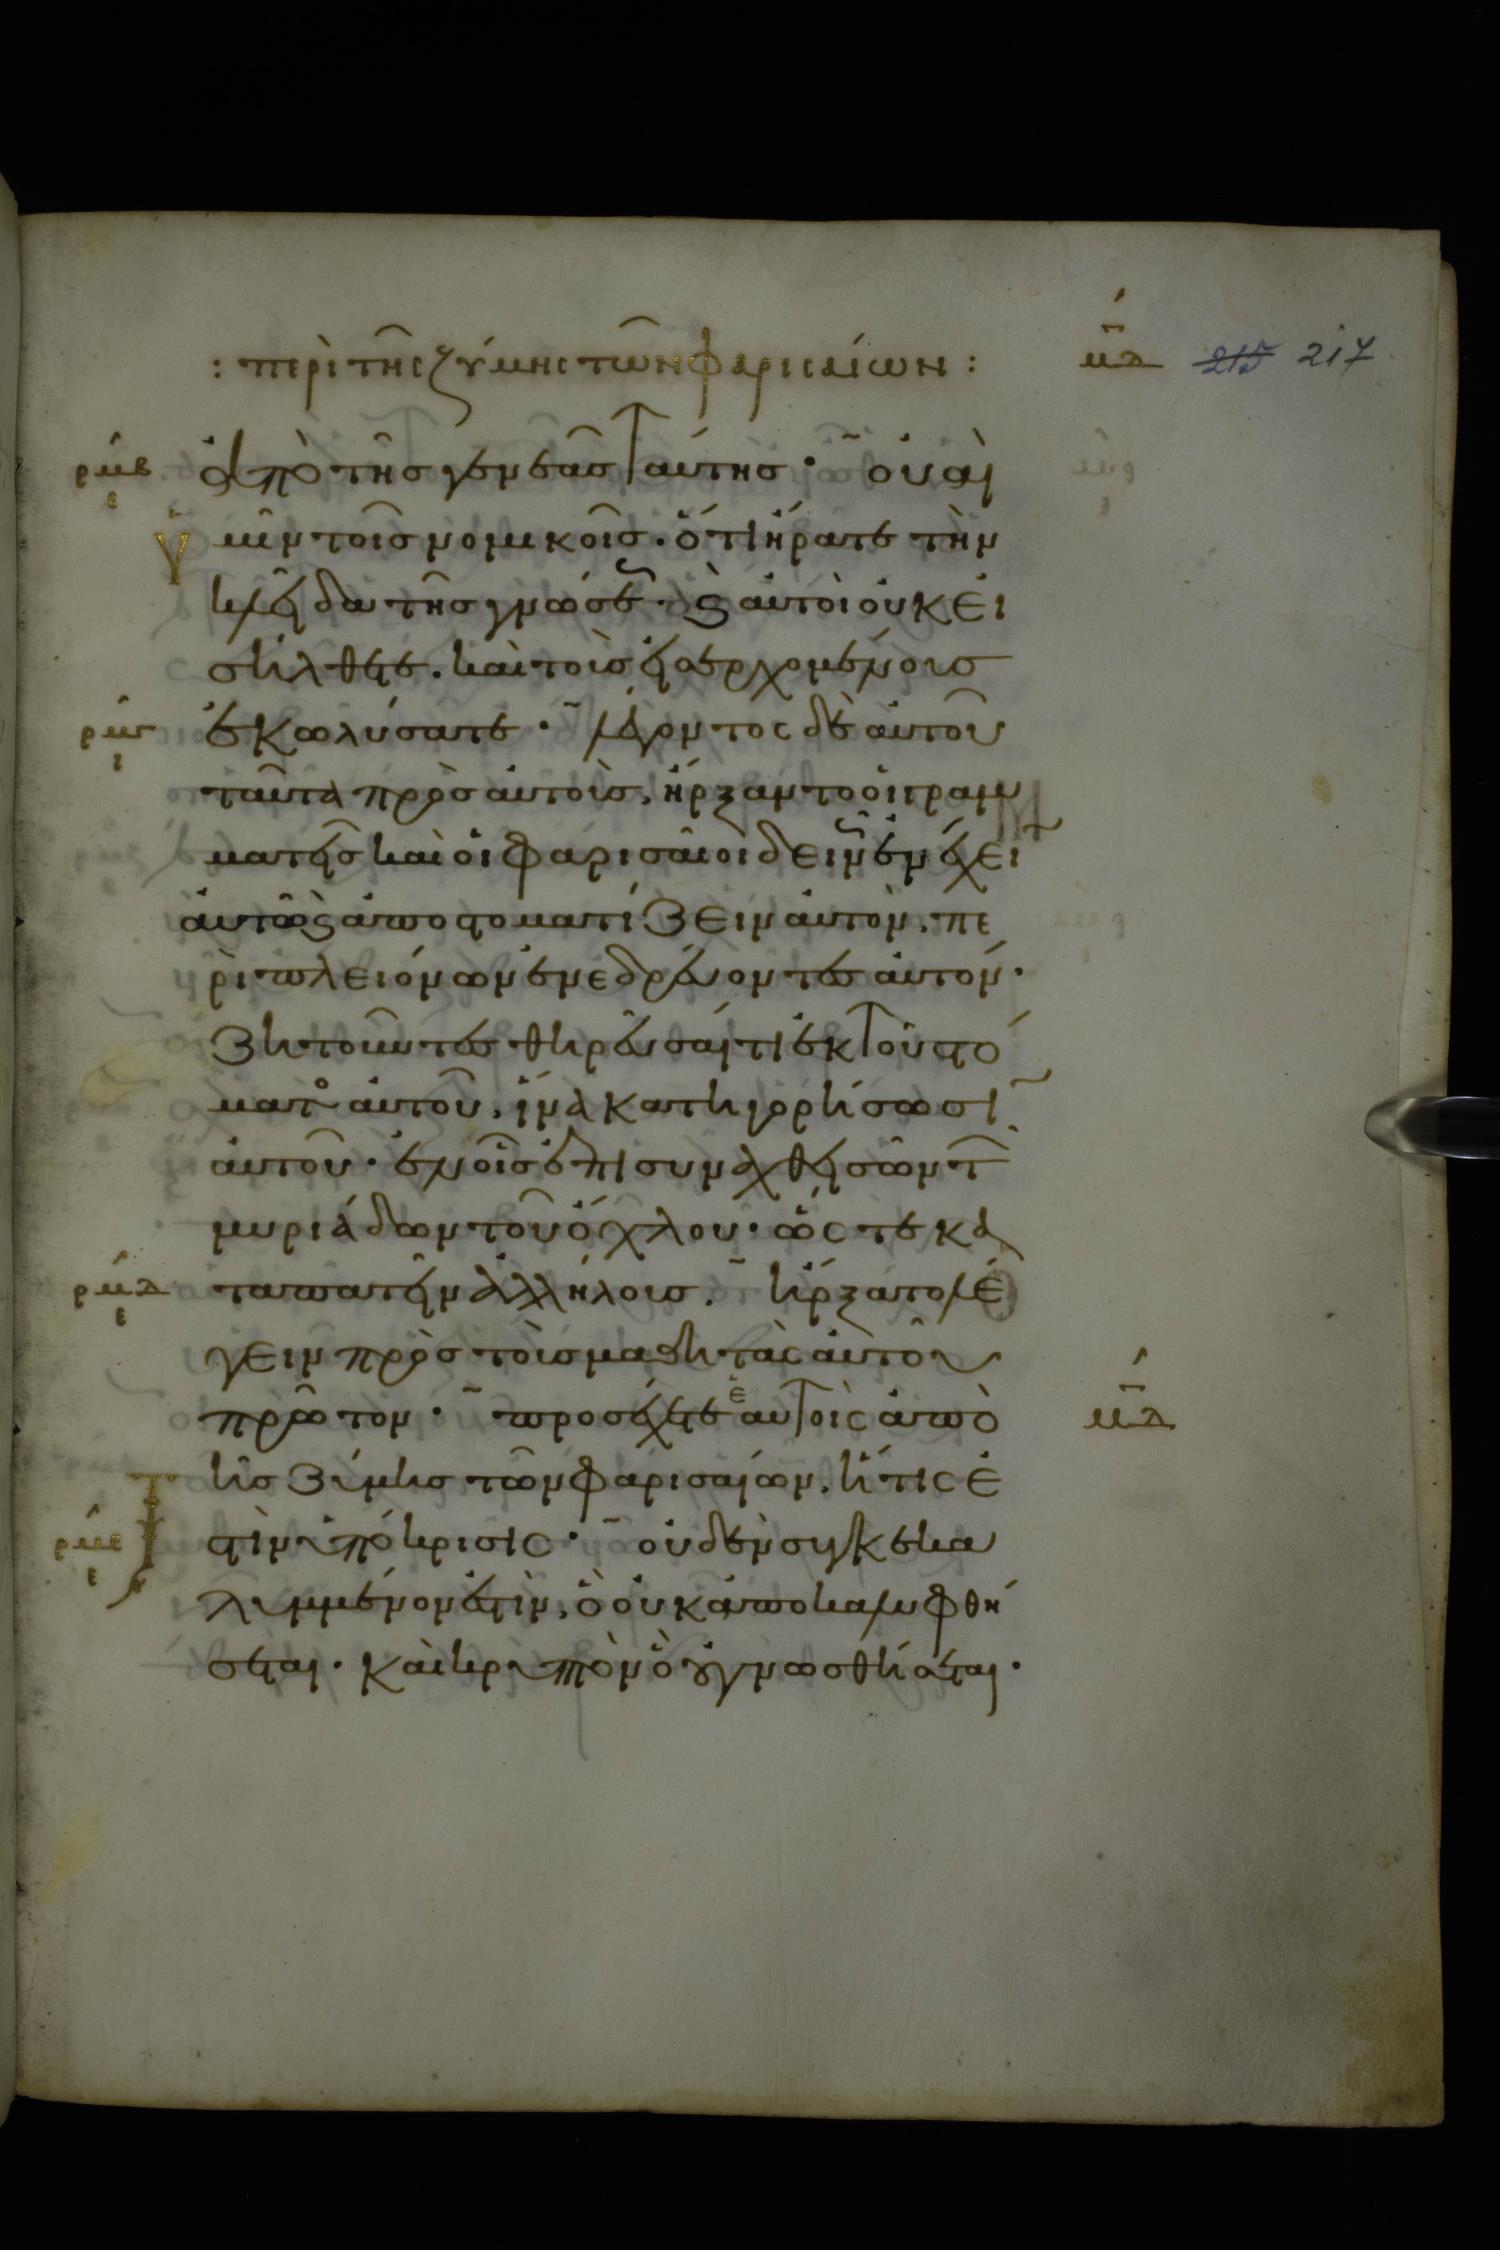 : περὶ τῆς ζύμης τῶν φαρισαίων : μδ 215 217
ρμβ ἀπὸ τῆς γενεᾶς ταύτης · οὐαὶ
ε
ὑμῖν τοῖς νομικοῖς · ὅτι ἤρατε τὴν
κλεῖδα τῆς γνώσε · ϗ αὐτοὶ οὐκ εἰ
σήλθετε · καὶ τοὺς εἰσερχομένους
ρμγ ἐκωλύσατε · λέγοντος δὲ αὐτοῦ
ι
ταῦτα πρὸς αὐτοὺς, ἤρξαντο οἱ γραμ
ματεῖς καὶ οἱ φαρισαῖοι δεινῶς ἐνέχειν
αὐτῶ ϗ ἀποστοματίζειν αὐτὸν, πε
ρὶ πλειόνων ἐνεδρεύοντες αὐτόν ·
ζητοῦντες θηρεῦσαί τι ἐκ τοῦ στό
ματος αὐτοῦ, ἵνα κατηγορήσωσι
αὐτοῦ · ἐν οἷς ἐπισυναχθεισῶν τῶν
μυριάδων τοῦ ὄχλου · ὥστε κα
ρμδ ταπατεῖν ἀλλήλους · ἤρξατο λέ
ε
γειν πρὸς τοὺς μαθητὰς αὐτοῦ
πρῶτον · προσέχετε ἑαυτοῖς ἀπὸ μδ
τῆς ζύμης τῶν φαρισαίων, ἥτις ἐ
ρμε στὶν ὑπόκρισις · οὐδὲν συγκεκα
ε
λυμμένον ἐστὶν, ὃ οὐκ ἀποκαλυφθή
σεται · καὶ κρυπτὸν ὃ οὐ γνωσθήσεται ·